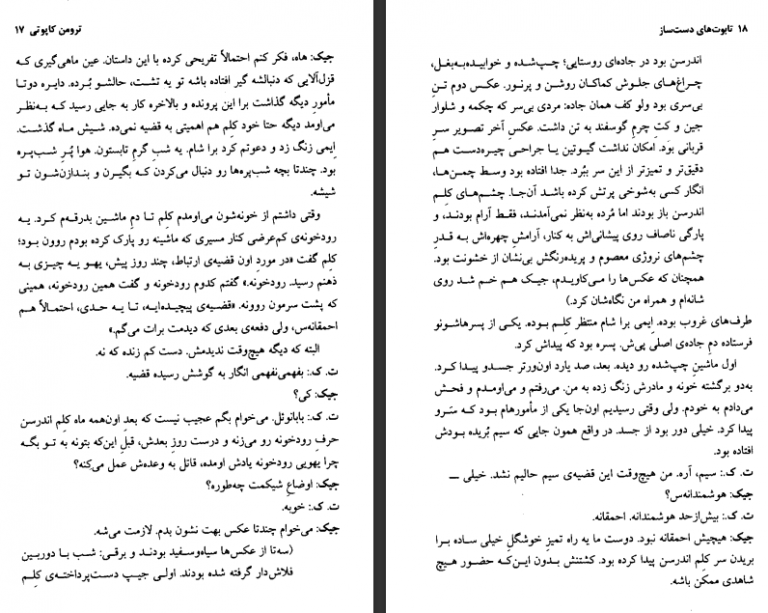 ترومن کاپوتی ۱۷
جیک: هاه، فکر کنم احتمالاً تفریحی کرده با این داستان. عین ماهی‌گیری که
قزل‌آلایی که دنبالشه گیر افتاده باشه تو یه تشت، حالشو بُرده. دایره دوتا
مأمورِ دیگه گذاشت برا این پرونده و بالاخره کار به جایی رسید که به‌نظر
می‌اومد دیگه حتا خود کلِم هم اهمیتی به قضیه نمی‌ده. شیش ماه گذشت.
اِیمی زنگ زد و دعوتم کرد برا شام. یه شبِ گرمِ تابستون. هوا پُرِ شب‌پره
بود. چندتا بچه شب‌پره‌ها رو دنبال می‌کردن که بگیرن و بندازن‌شون تو
شیشه.
وقتی داشتم از خونه‌شون می‌اومدم کلِم تا دمِ ماشین بدرقه‌م کرد. یه
رودخونه‌ی کم‌عرضی کنار مسیری که ماشینه رو پارک کرده بودم روون بود؛
کلِم گفت «در مورد اون قضیه‌ی ارتباط، چند روز پیش، یهو یه چیزی به
ذهنم رسید. رودخونه.» گفتم کدوم رودخونه و گفت همین رودخونه، همینی
که پشت سرمون روونه. «قضیه‌ی پیچیده‌ایه، تا یه حدی، احتمالاً هم
احمقانه‌س، ولی دفعه‌ی بعدی که دیدمت برات می‌گم.»
البته که دیگه هیچ‌وقت ندیدمش. دست کم زنده که نه.
ت. ک.: بفهمی‌نفهمی انگار به گوشش رسیده قضیه.
جیک: کی؟
ت. ک.: بابانوئل. می‌خوام بگم عجیب نیست که بعدِ اون‌همه ماه کلِم اندرسن
حرفِ رودخونه رو می‌زنه و درست روزِ بعدش، قبلِ این‌که بتونه به تو بگه
چرا یهویی رودخونه یادش اومده، قاتل به وعده‌ش عمل می‌کنه؟
جیک: اوضاعِ شیکمت چه‌طوره؟
ت. ک.: خوبه.
جیک: می‌خوام چندتا عکس بهت نشون بدم. لازمت می‌شه.
(سه‌تا از عکس‌ها سیاه‌وسفید بودند و برقی: شب با دوربین
فلاش‌دار گرفته شده بودند. اولی جیپ دست‌پرداخته‌ی کلِم
۱۸ تابوت‌های دست‌ساز
اندرسن بود در جاده‌ای روستایی؛ چپ‌شده و خوابیده‌به‌بغل،
چراغ‌های جلوش کماکان روشن و پرنور. عکس دوم تنِ
بی‌سری بود ولو کف همان جاده: مردی بی‌سر که چکمه و شلوار
جین و کتِ چرمِ گوسفند به تن داشت. عکسِ آخر تصویر سرِ
قربانی بود. امکان نداشت گیوتین یا جراحی چیره‌دست هم
دقیق‌تر و تمیزتر از این سر ببُرد. جدا افتاده بود وسط چمن‌ها،
انگار کسی به‌شوخی پرتش کرده باشد آن‌جا. چشم‌های کلِم
اندرسن باز بودند اما مُرده به‌نظر نمی‌آمدند، فقط آرام بودند، و
پارگی ناصاف روی پیشانی‌اش به کنار، آرامشِ چهره‌اش به قدرِ
چشم‌های نروژی معصوم و پریده‌رنگش بی‌نشان از خشونت بود.
همچنان که عکس‌ها را می‌کاویدم، جیک هم خم شد روی
شانه‌ام و همراه من نگاه‌شان کرد.)
طرف‌های غروب بوده. اِیمی برا شام منتظر کلِم بوده. یکی از پسرهاشونو
فرستاده دمِ جاده‌ی اصلی پی‌ش. پسره بود که پیداش کرد.
اول ماشینِ چپ‌شده رو دیده. بعد، صد یارد اون‌ورتر جسدو پیدا کرد.
به‌دو برگشته خونه و مادرش زنگ زده به من. می‌رفتم و می‌اومدم و فحش
می‌دادم به خودم. ولی وقتی رسیدیم اون‌جا یکی از مأمورهام بود که سَرو
پیدا کرد. خیلی دور بود از جسد. در واقع همون جایی که سیم بُریده بودش
افتاده بود.
ت. ک.: سیم، آره. من هیچ‌وقت این قضیه‌ی سیم حالیم نشد. خیلی ــ
جیک: هوشمندانه‌س؟
ت. ک.: بیش‌ازحد هوشمندانه. احمقانه.
جیک: هیچیش احمقانه نبود. دوست ما یه راه تمیزِ خوشگلِ خیلی ساده برا
بریدن سر کلِم اندرسن پیدا کرده بود. کشتنش بدون این‌که حضور هیچ
شاهدی ممکن باشه.